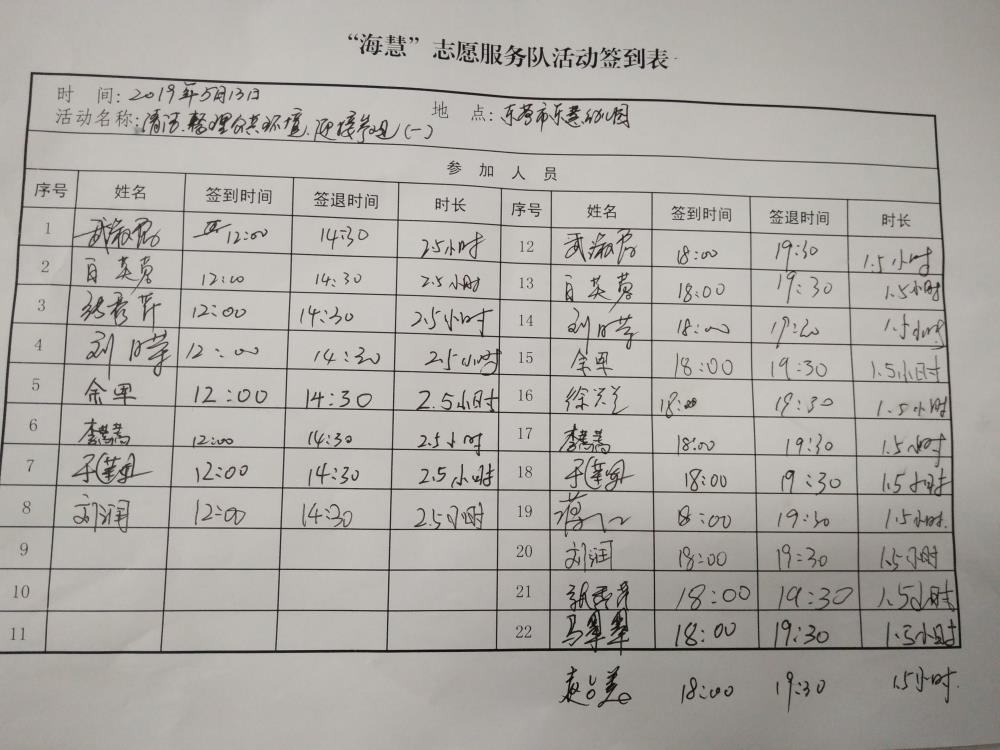 “海慧”志愿服务队活动签到表
时 间: 2019年5月13日 地 点: 东营市东慧幼儿园
活动名称: 清洁、整理公共环境、迎接参观(一)
参 加 人 员
序号 姓名 签到时间 签退时间 时长 序号 姓名 签到时间 签退时间 时长
1 武淑 12:00 14:30 2.5小时 12 武淑 18:00 19:30 1.5小时
2 英 12:00 14:30 2.5小时 13 英 18:00 19:30 1.5小时
3 12:00 14:30 2.5小时 14 刘 18:00 19:30 1.5小时
4 刘 12:00 14:30 2.5小时 15 余 18:00 19:30 1.5小时
5 余 12:00 14:30 2.5小时 16 徐 18:00 19:30 1.5小时
6 李 12:00 14:30 2.5小时 17 李 18:00 19:30 1.5小时
7 12:00 14:30 2.5小时 18 18:00 19:30 1.5小时
8 刘润 12:00 14:30 2.5小时 19 18:00 19:30 1.5小时
9 20 刘润 18:00 19:30 1.5小时
10 21 18:00 19:30 1.5小时
11 22 马翠翠 18:00 19:30 1.5小时
18:00 19:30 1.5小时